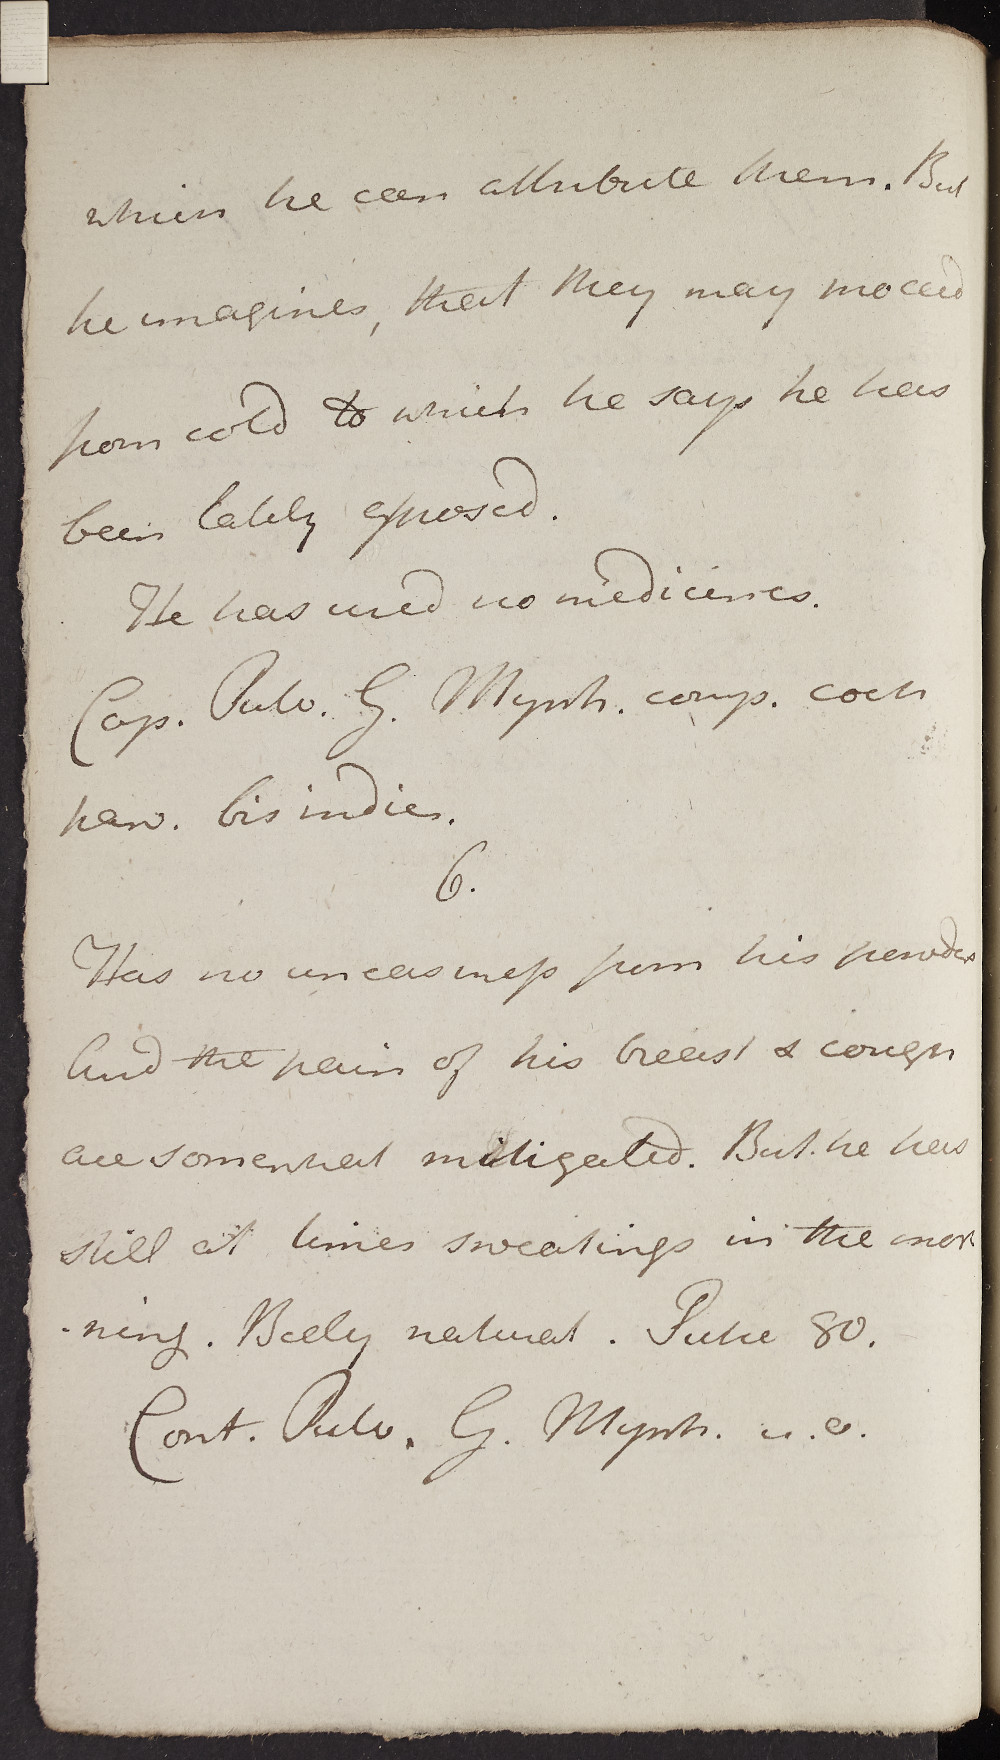 which he can attribute them. But
he imagines, that they may proceed
from cold to which he says he has
been lately exposed.
He has used no medicines.
Cap. Pulv. G. Myrrh. comp. coch
parv. bis indies.
6.
Has no uneasiness from his powders
And the pain of his breast & cough
are somewhat mitigated. But he has
still at times sweatings in the mor
-ning. Belly natural. Pulse 80.
Cont. Pulv. G. Myrrh. u.a.